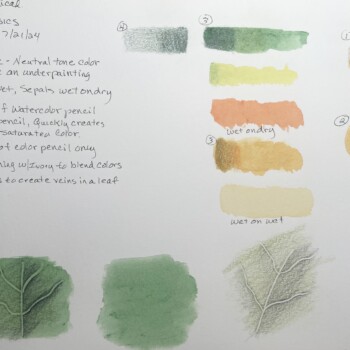 ical
sics
7/21/24
- Neutral tone color
on underpainting
et, Sepals wet on dry
of Watercolor pencil
pencil, Quickly creates
-saturated color.
of color pencil only
ing w/Ivory to blend colors
to create veins in a leaf
4
2
wet on dry
3
wet on wet